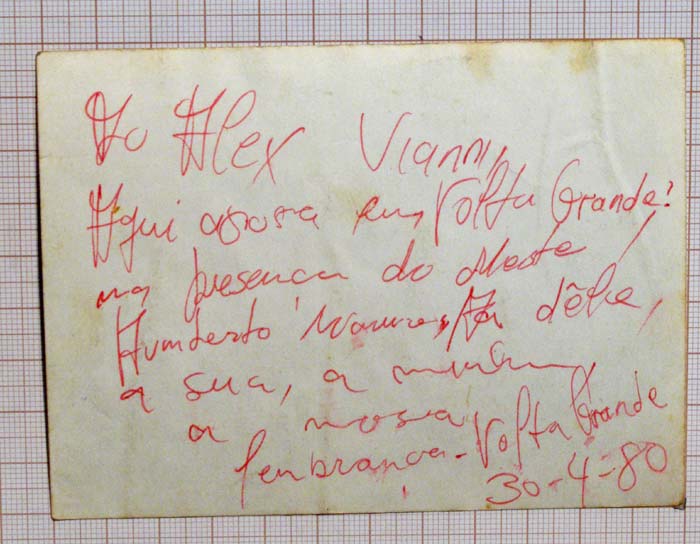 Ao Alex Vianny,
Aqui agora em, Volta Grande!
na presença do Mestre
Humberto Mauro, a dêle,
a sua, a minha,
a nossa
lembrança - Volta Grande
30-4-80